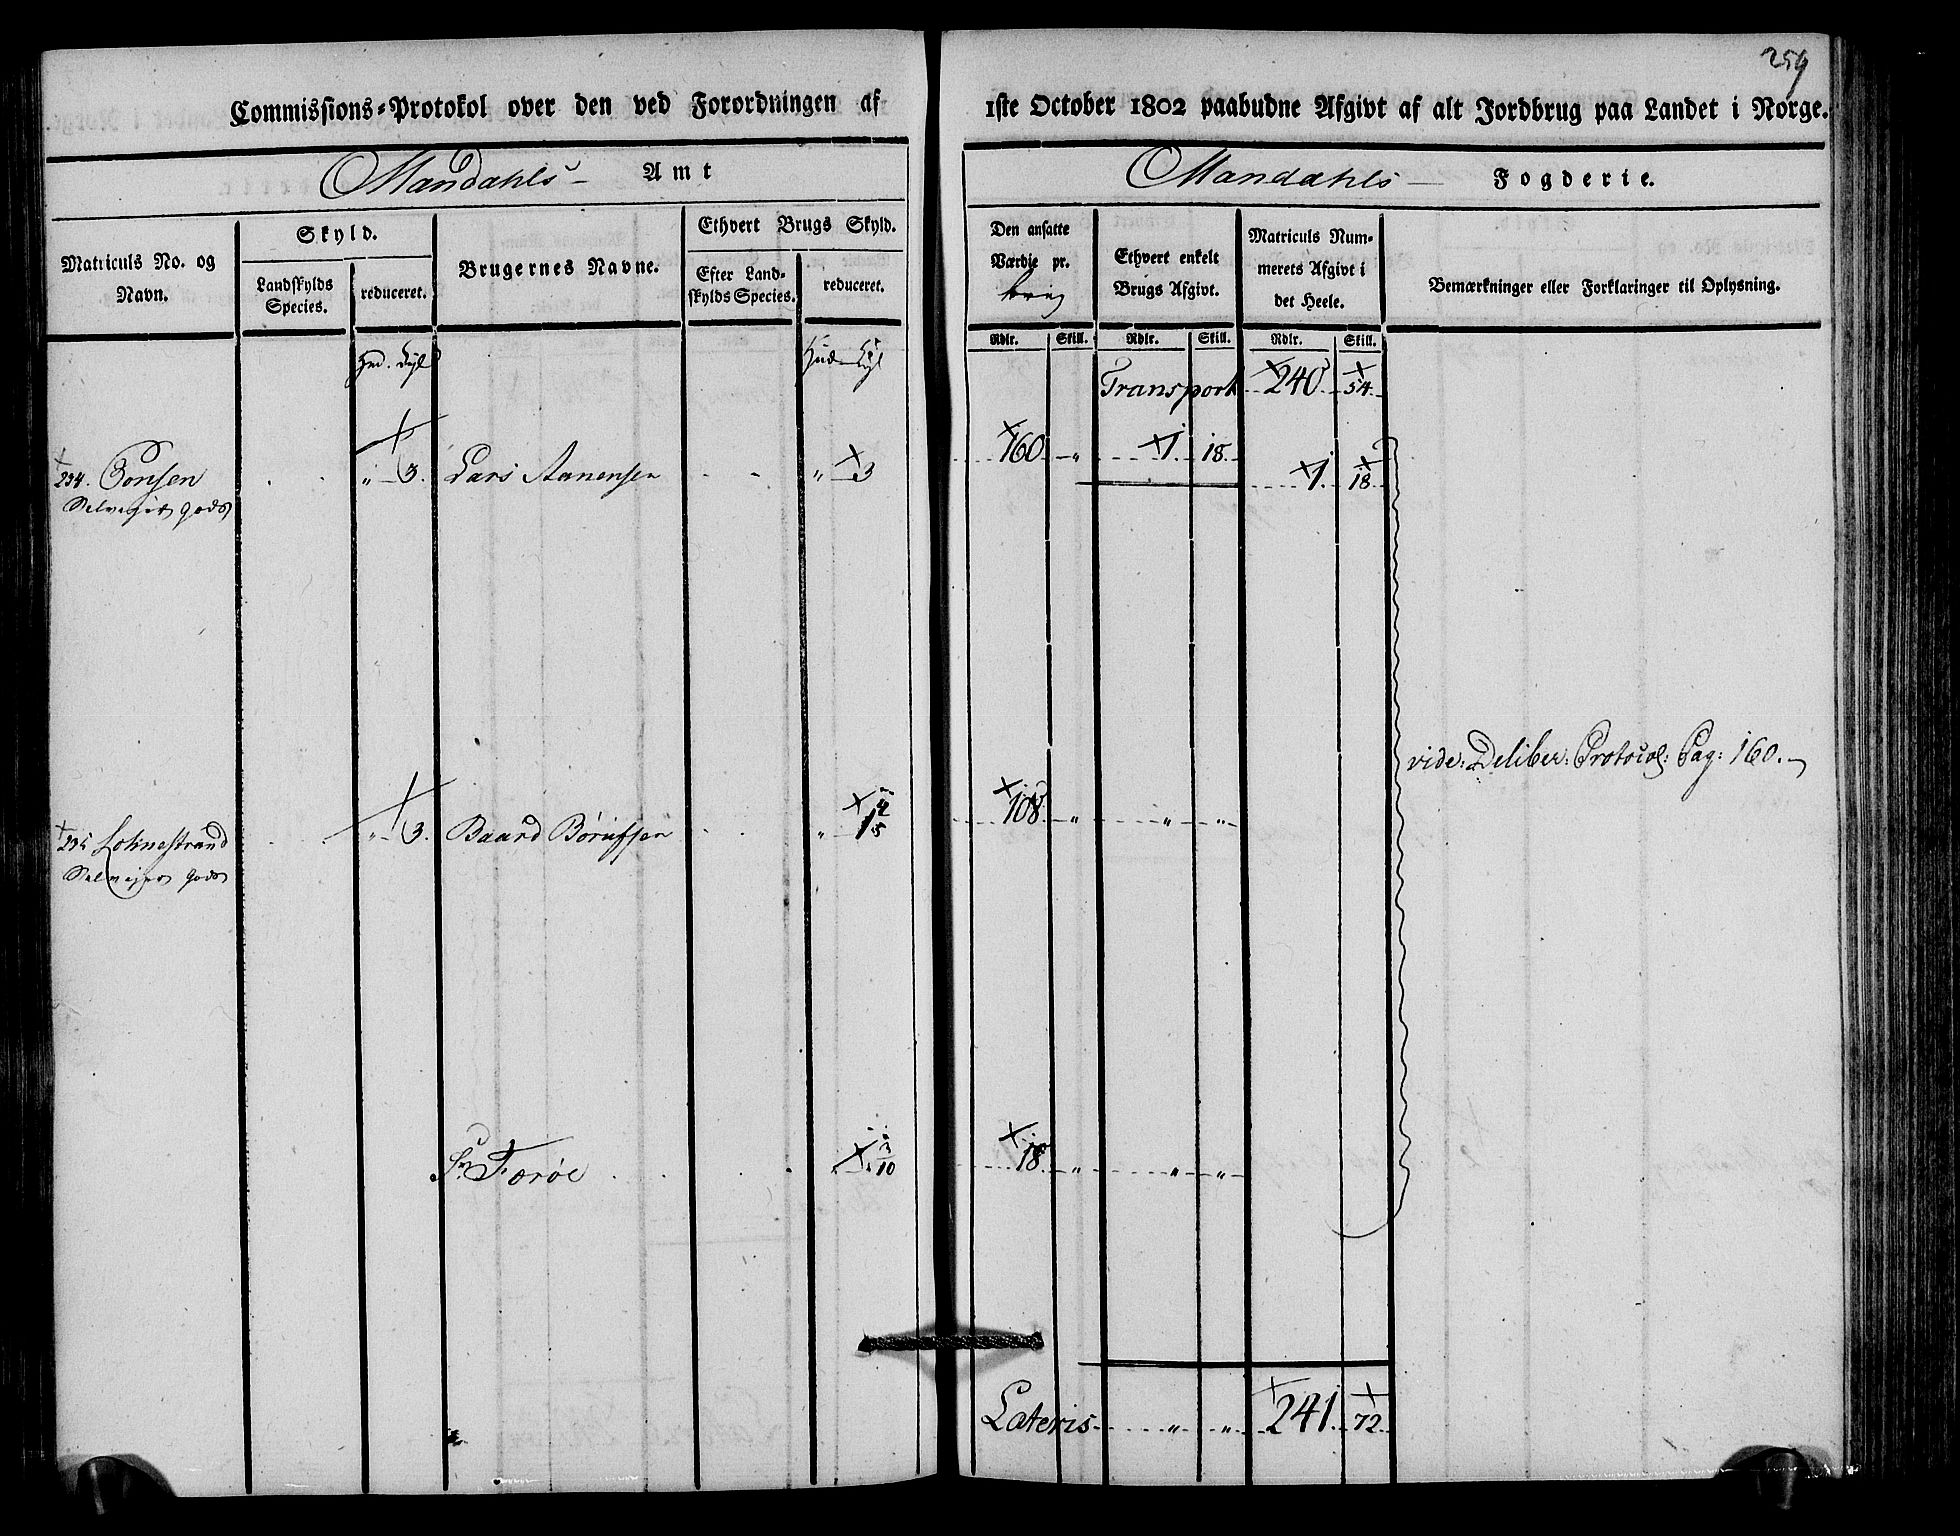 259
Commissions-Protokol over den ved Forordningen af 1ste October 1802 paabudne Afgivt af alt Jordbrug paa Landet i Norge.
Mandahls Amt
Mandahls Fogderie.
Matriculs No. og Navn.
Skyld.
Landskylds Species.
reduceret.
Brugernes Navne.
Ethvert Brugs Skyld.
Efter Landskylds Species.
reduceret.
Den ansatte Værdie pr.
Ethvert enkelt Brugs Afgivt.
Matriculs Nummerets Afgivt i det Heele.
Bemærkninger eller Forklaringer til Oplysning.
Rdlr. Skill. Rdlr. Skill. Rdlr. Skill.
Transport 240 54
234. Tonsen " 3. Lars Aanensen " 3 160 " 1. 18. 1. 18
Selveier gods
vide: Deliber: Protocol: Pag: 160.
235 Lohnestrand " 3. Baard 108 " " "
Selveier gods
Færöe 3/10 18 " " "
Lateris " " 241. 72